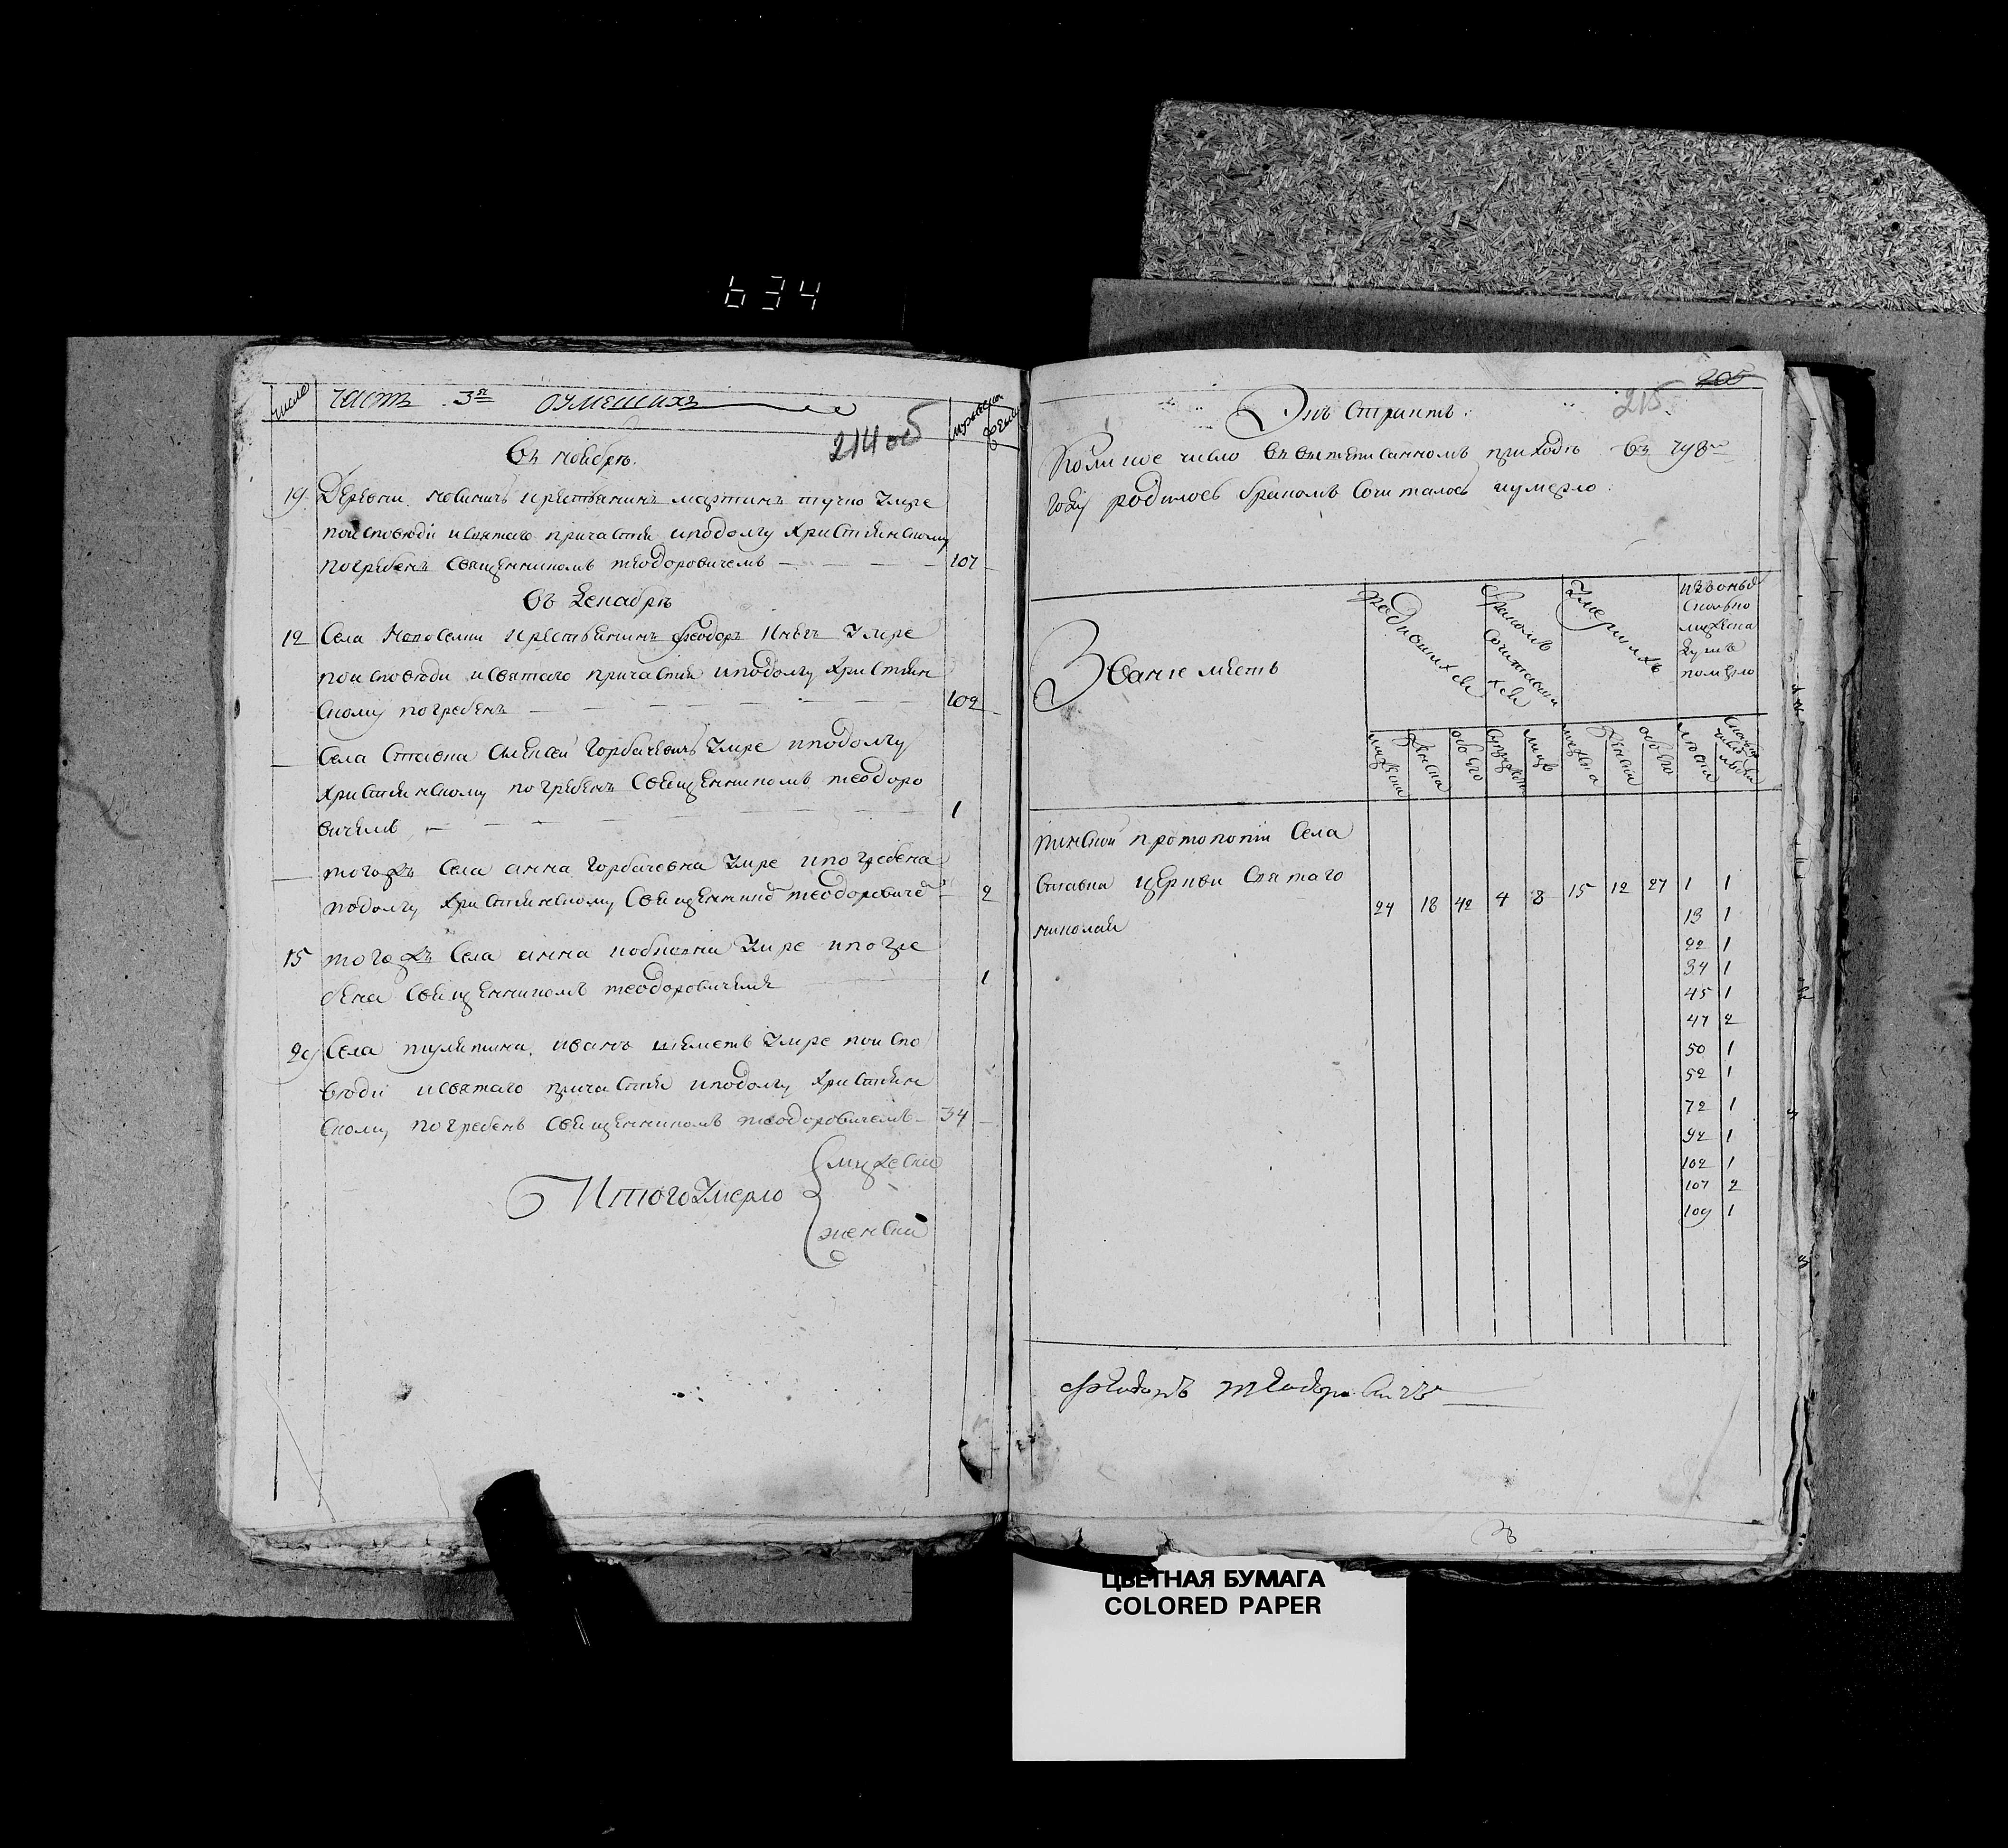 634
число
часть 3я о умешихъ
мужеска
женска
214 об
Въ ноябрѣ.
19 Деревни крестьянинъ мартинъ тучко Умре
по исповѣди и святаго причастия и по долгу християнскому
погребенъ священникомъ теодоровичемъ 107
Въ декабрѣ
12 Села крестьянинъ феодоръ Умре
по исповѣди и святаго причастия и по долгу християн
скому погребенъ 102
Села Ставка алексей Горбачевичъ Умре и по долгу
християнскому погребенъ священникомъ теодоро
вичемъ 1
того жъ Села анна Горбачевна Умре и погребена
по долгу християнскому священникомъ теодоровичемъ 2
15 того жъ Села анна Умре и погре
бена священникомъ теодоровичемъ 1
29 Села иванъ шеметъ Умре по испо
вѣди и святаго причастия и по долгу християн
скому погребенъ священникомъ теодоровичемъ 34
Итого Умерло
мужеска
женска
205
215
Экстрактъ
Коликое число въ вышеписанномъ приходѣ въ 798м
Году родилось бракомъ Сочиталось и умерло
Звание местъ
родившихся
бракомъ сочитавшихся
Умершихъ
изъ оныхъ
сколько
мужеска
душъ
померло
мужеска
женска
обоего
супружествъ
лицъ
мужеска
женска
обоего
пинской протопопiи Села
Ставка церкви Святаго
николая
24 18 42 4 8 15 12 27 1 1
13 1
22 1
34 1
45 1
47 2
50 1
52 1
72 1
92 1
102 1
107 2
109 1
Феодоръ теодоровичъ
ЦВЕТНАЯ БУМАГА
COLORED PAPER